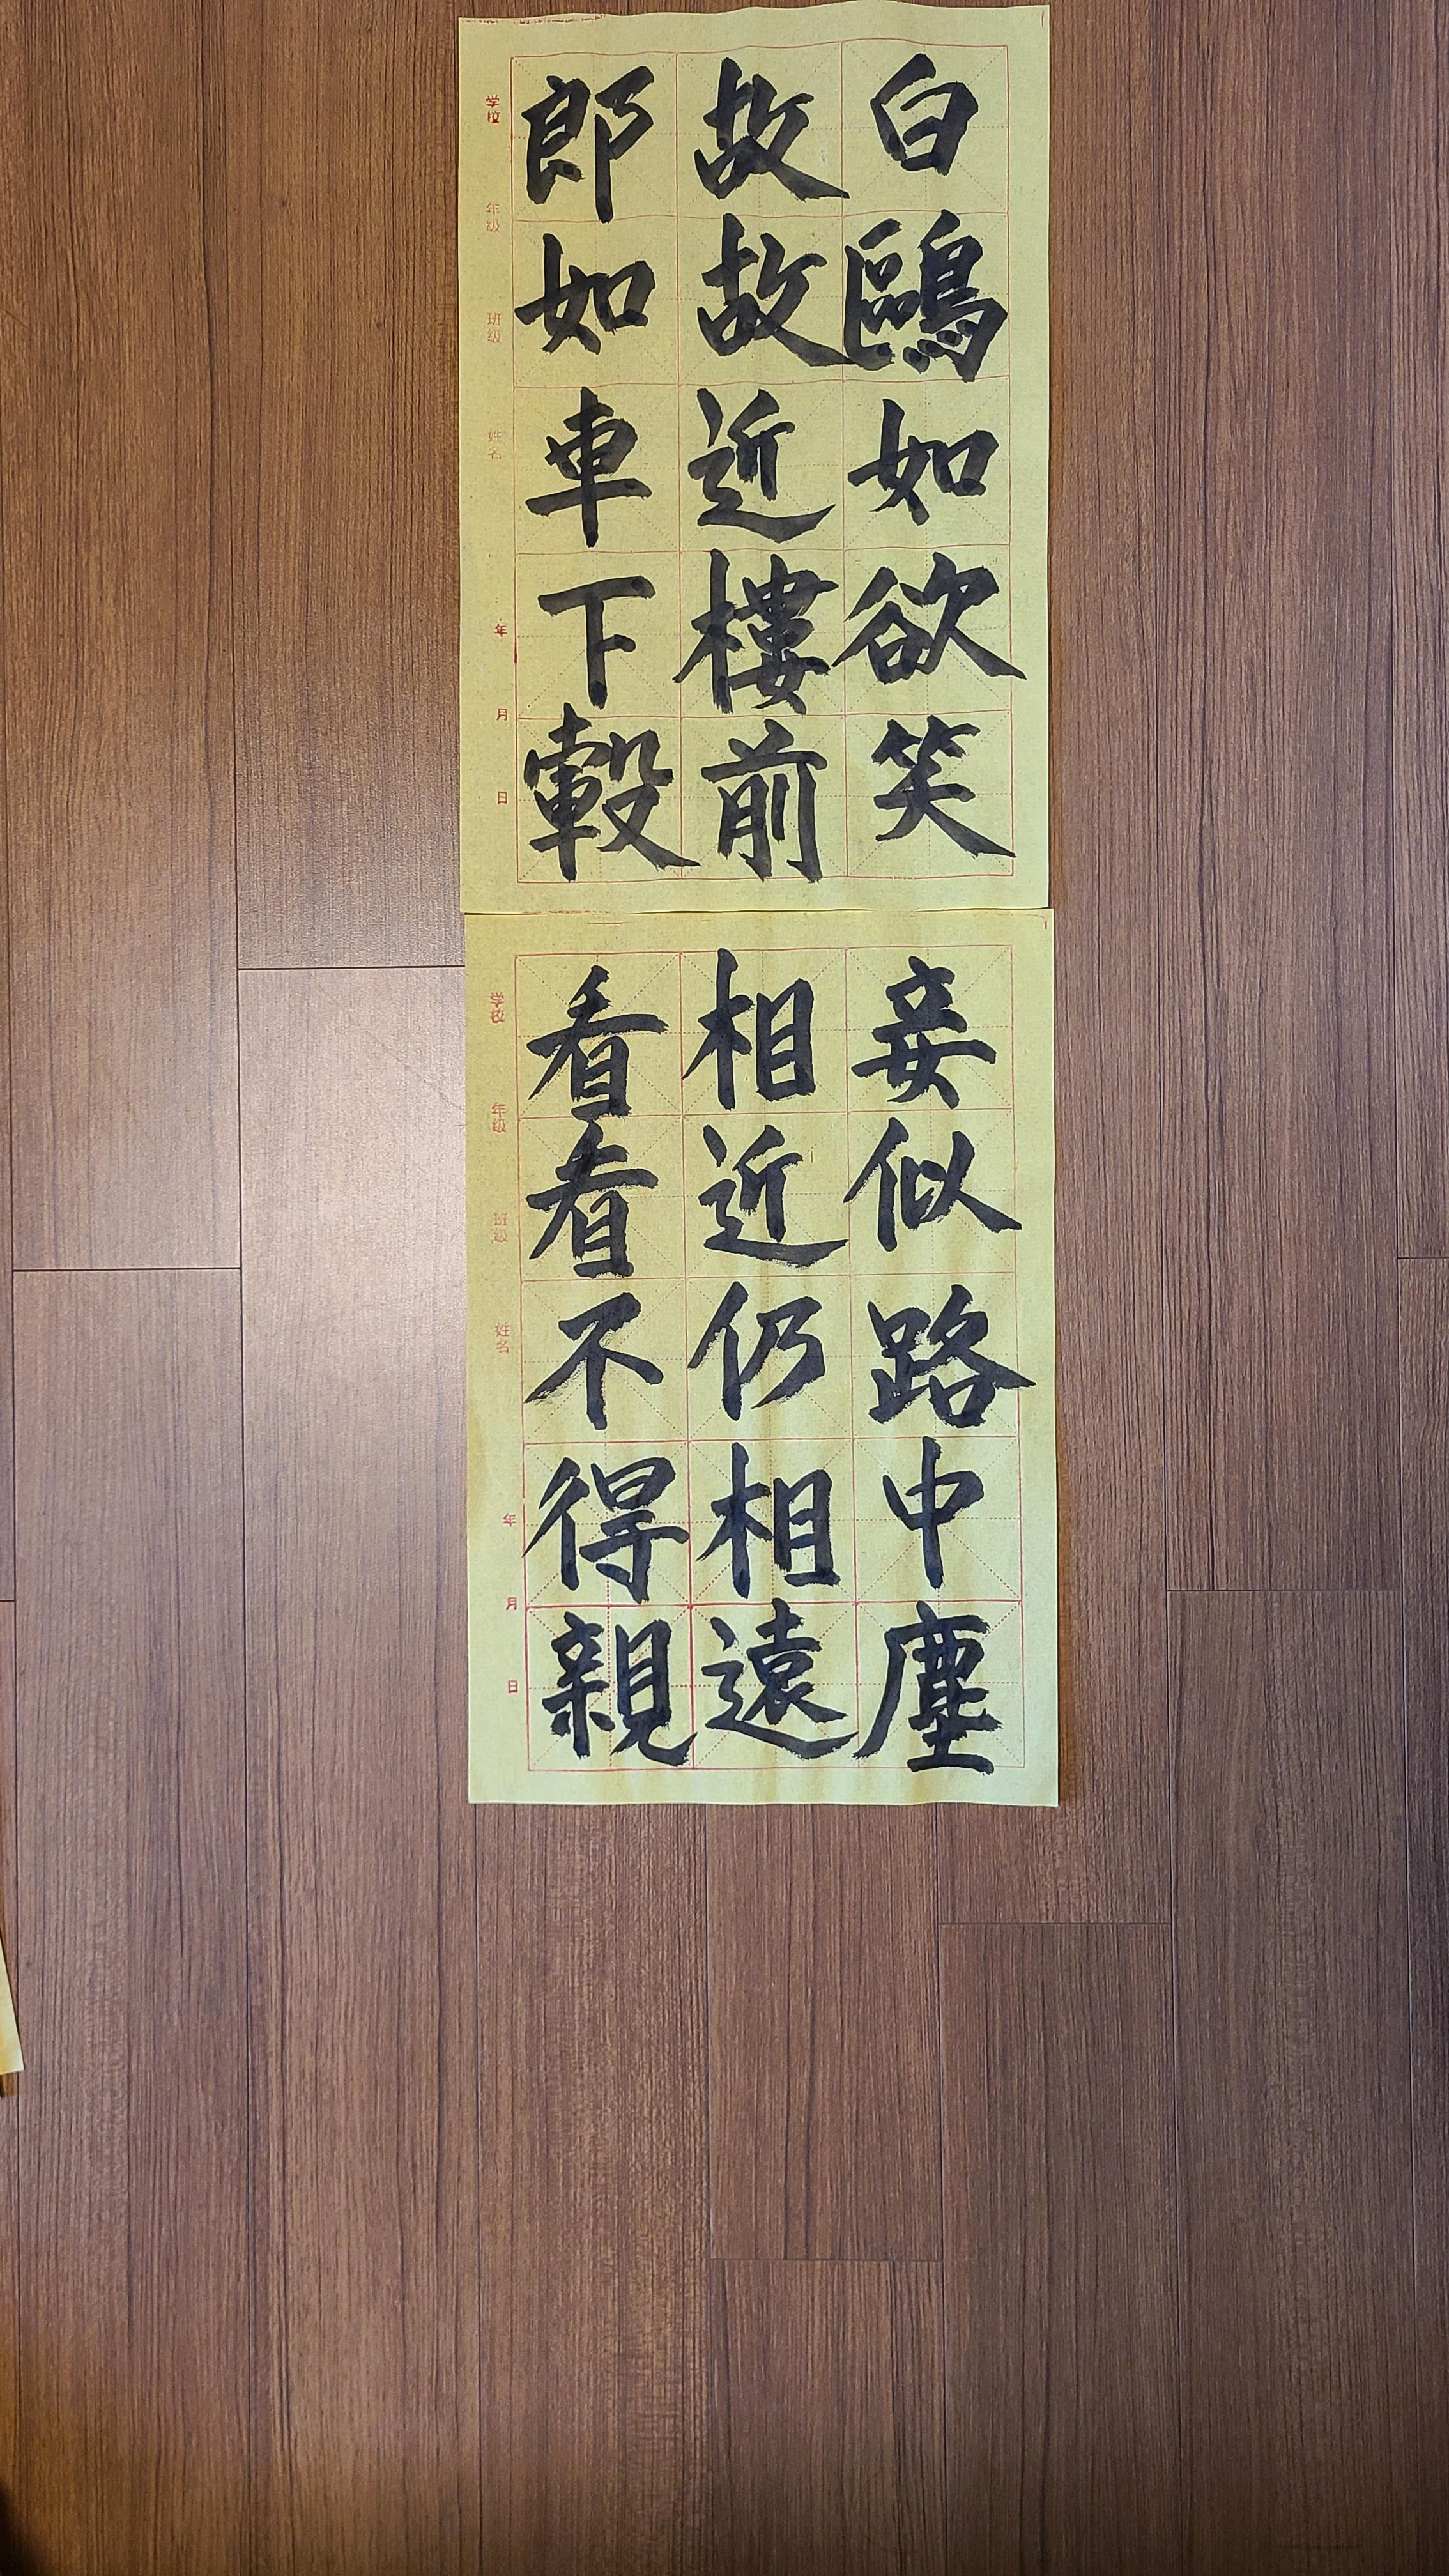 白鷗如欲笑
故故近樓前
郎如車下轂
学校
年级
班级
姓名
年
月
日
妾似路中塵
相近仍相遠
看看不得親
学校
年级
班级
姓名
年
月
日